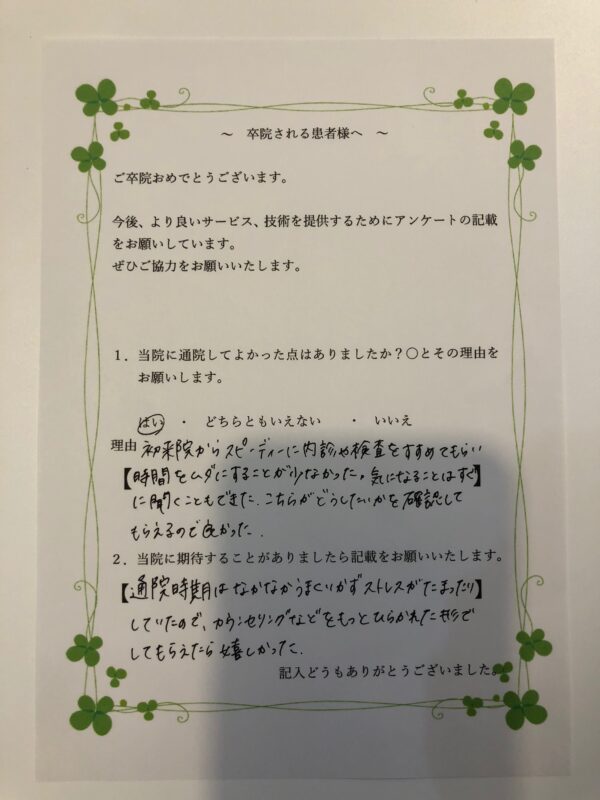 ～ 卒院される患者様へ ～
ご卒院おめでとうございます。
今後、より良いサービス、技術を提供するためにアンケートの記載
をお願いしています。
ぜひご協力をお願いいたします。
1．当院に通院してよかった点はありましたか？○とその理由を
お願いします。
はい ・ どちらともいえない ・ いいえ
理由 初来院からスピーディーに内診や検査をすすめてもらい
【時間をムダにすることが少なかった。気になることはすぐ】
に聞くこともできた。こちらがどうしたいかを確認して
もらえるので良かった。
2．当院に期待することがありましたら記載をお願いいたします。
【通院時期はなかなかうまくいかずストレスがたまったり】
していたので、カウンセリングなどをもっとひらかれた形で
してもらえたら嬉しかった。
記入どうもありがとうございました。